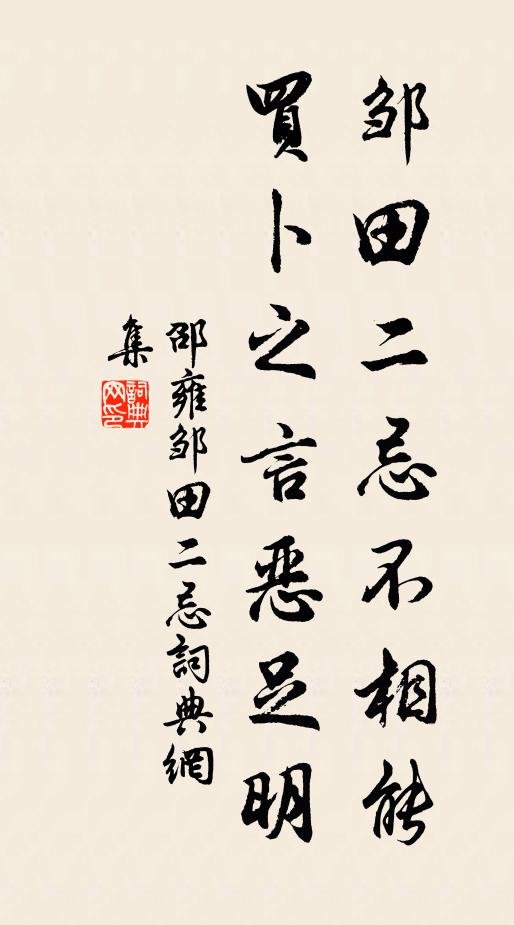 邹田二忌不相能
買卜之言惡足明
邵雍邹田二忌詞典網
集
詞典
网印